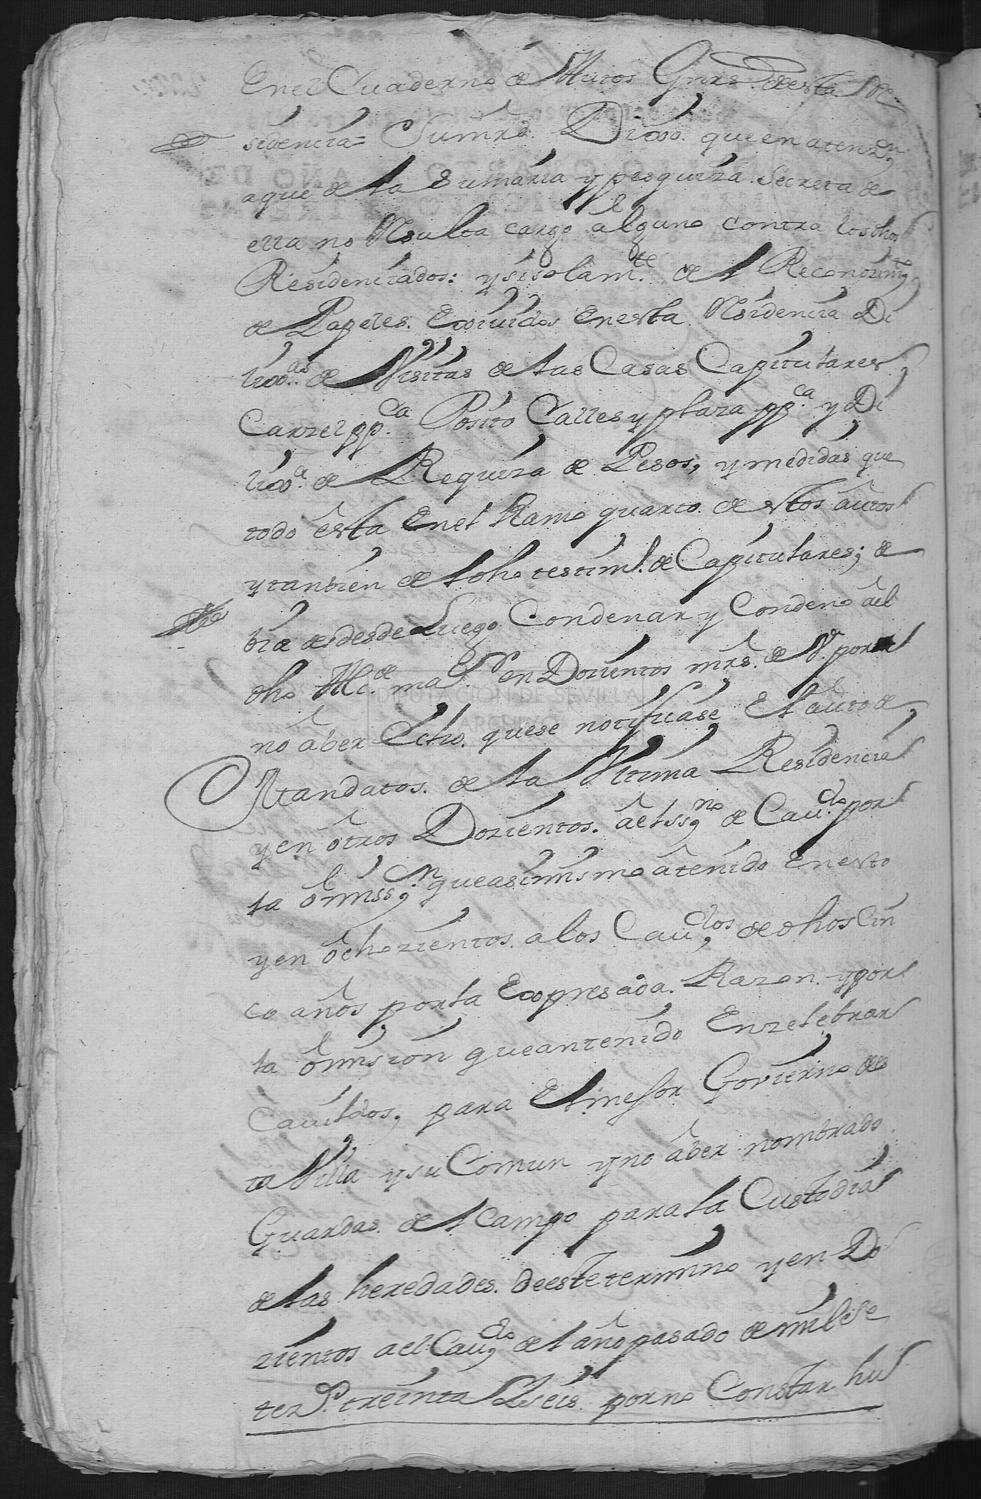 En el Cuaderno de Autos Gnrs. de esta Re
sidencia = Su mrd. Dixo. que en atenzn
aque de la Sumaria y pesquiza Secreta de
ella no Resulta cargo alguno contra los dhos
Residenciados: y si solamte. de el Reconozimto
de Papeles. Exsividos en esta Residencia Di
lixas. de Visitas de las Casas Capitulares
Carzel ppca Posito Calles y plaza ppca. y Di
lixa. de Requiza de Pesos, y medidas que
todo esta En el Ramo quarto. de estos autos
y tanbien de el dho testim.o de Capitulares; de
bia de desde Luego Condenar y Condeno ael
dho Alcde. mar. en Dozientos mrs. de Vn. por
no aber Echo. que se notificase El auto de
Mandatos. de la Ultima Residencia
y en otros Dozientos. ael ssno de Cavdo. por
la omissn. que asimismo a tenido En esto
y en ochozientos. a los Cavdos. de dhos Cin
co años por la Expresada. Razon. y por
la omision que an tenido En zelebrar
Cavildos, para El mejor Govierno de es
ta Villa y su Comun y no aber nombrado
Guardas. de el campo para la Custodia
de las heredades. de este termino y en Do
zientos a el Cavdo. de el año pasado de mil Se
tezs. treinta Y Seis. por no Constar hu
DIPUTACIÓN DE SEVILLA
ARCHIVO